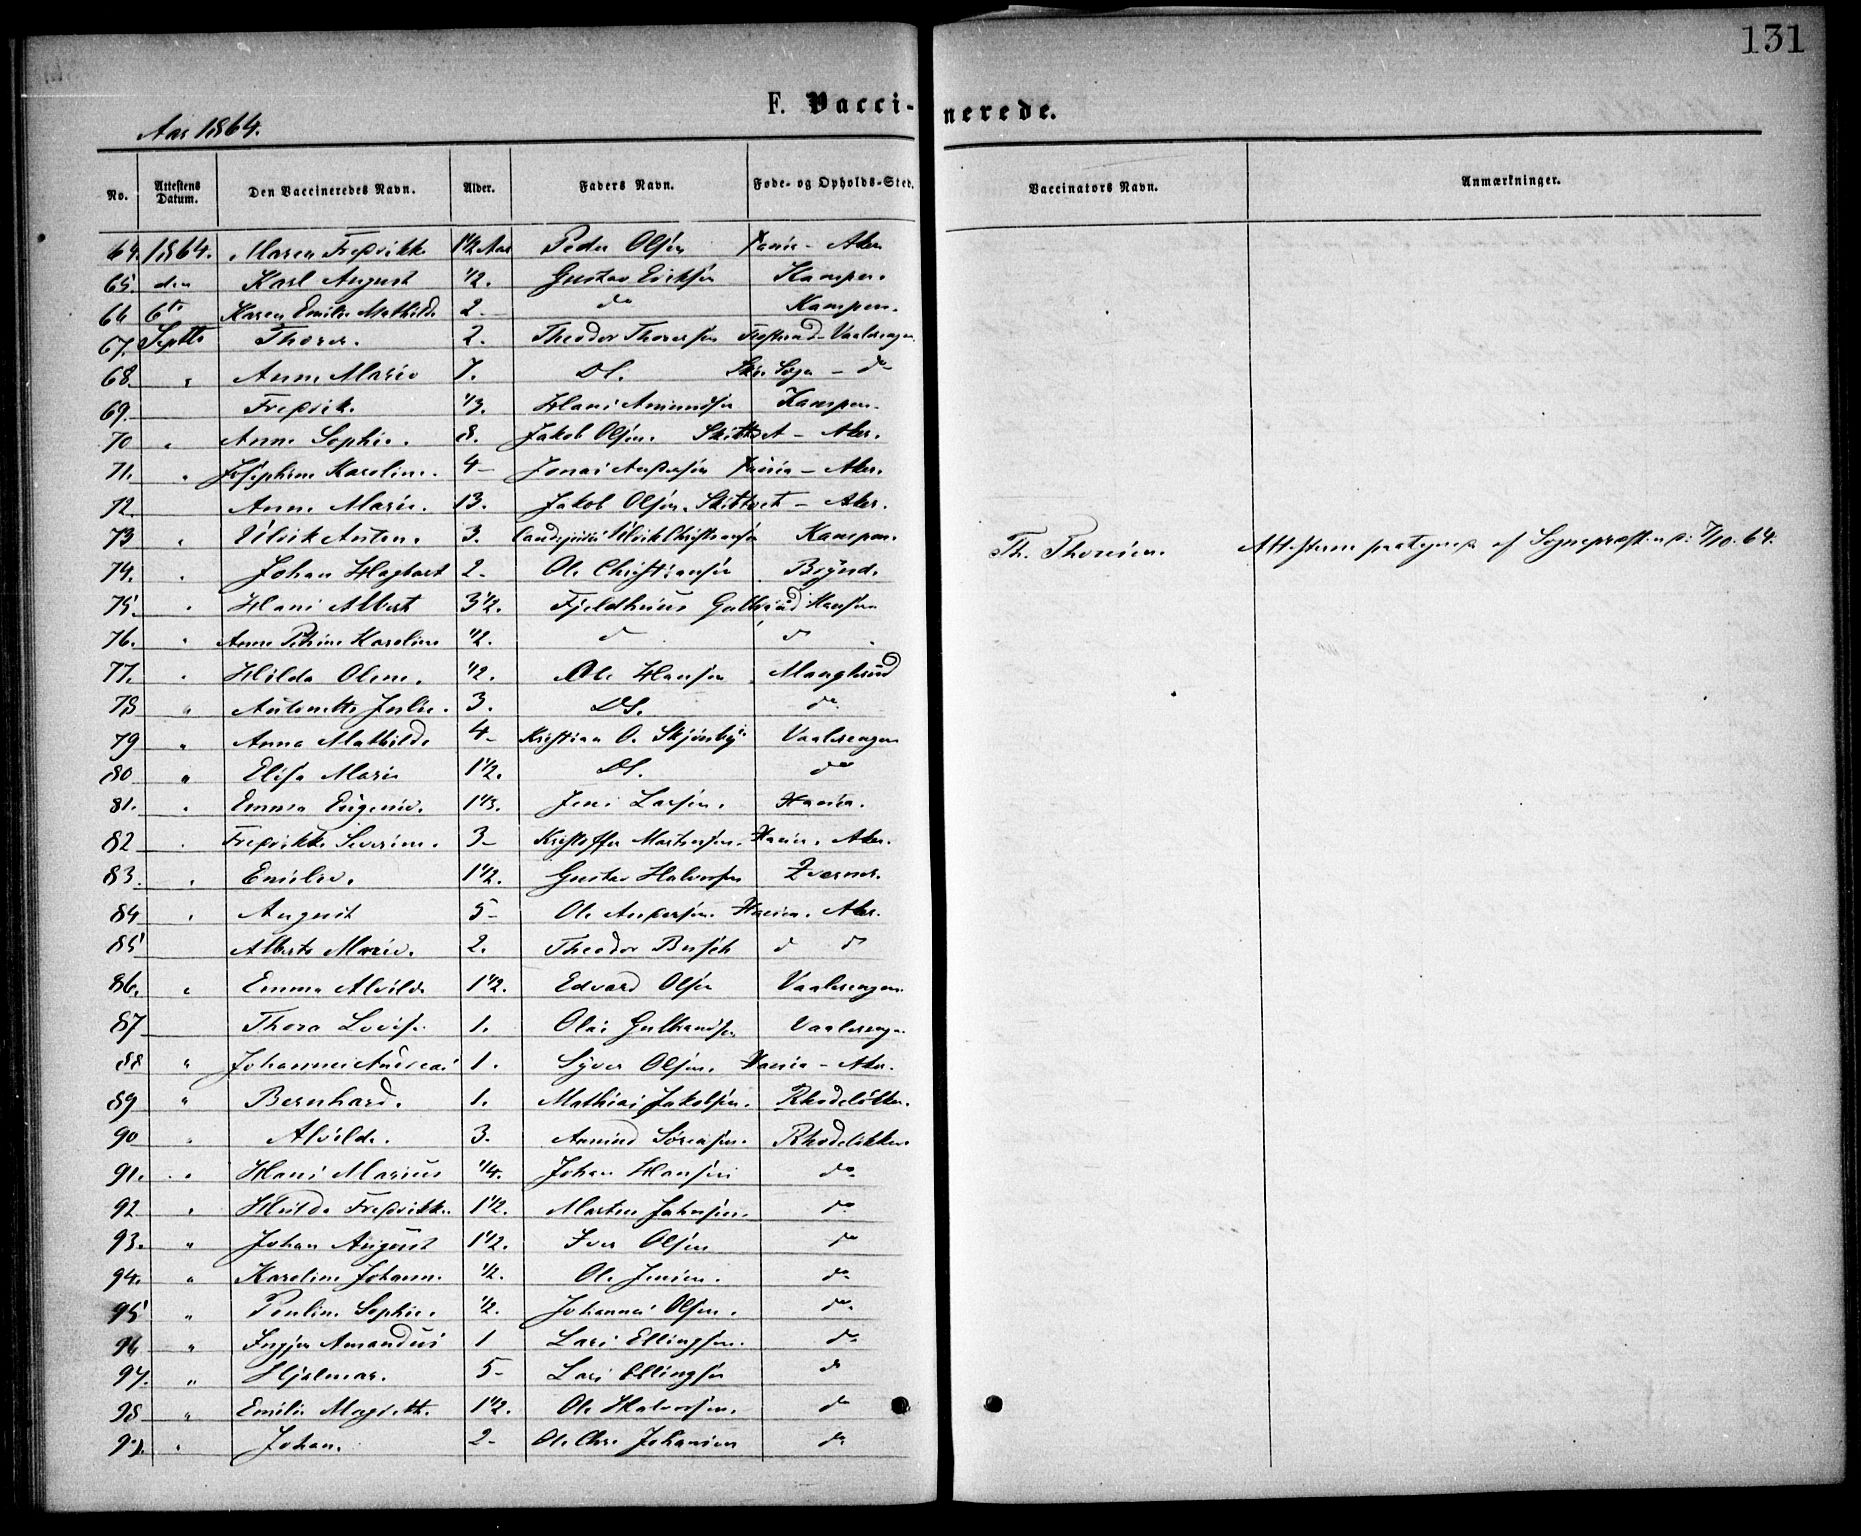 131
F. Vaccinerede.
Aar 1864.
No. Attestens Datum. Den Vaccineredes Navn. Alder. Faders Navn. Føde- og Opholds-Sted. Vaccinators Navn. Anmærkninger.
64. 1864. Maren Fredrikke 1 1/2 Aar Peder Olsen Xania - Aker
65. den Karl August 1/2. Gustav Eriksen Kampen.
66 6te Karen Emilie Mathilde 2 - do Kampen.
67. Septbr Thorer. 2. Theodor Thoresen Vaalerengen
68. " Anne Marie 7. Do. Ski Sogn - do
69. Fredrik. 1/3. Hans Amundsen Kampen.
70 " Anne Sophie. 8. Jakob Olsen. Skibtvet - Aker.
71. " Josephine Karoline. 4 - Jonas Andersen Xania - Aker.
72 Anne Marie. 13. Jakob Olsen. Skibtvet - Aker.
73 " Ulrik Anton. 3. Ulrik Christiansen Kampen.
Th. Thoresen. Attesterne paategnede af Sognepræsten d: 7/10. 64.
74. " Johan Hagbart 2 - Ole Christiansen Brynd.
75. " Hans Albert 3 1/2. Fjeldhuus Gulbrand Hansen
76. " Anne Petrine Karoline 1/2. do do
77. " Hilda Olene. 1/2. Ole Hansen Manglerud
78 " Antonette Julie. 3. Do. do
79 " Anna Mathilde 4 - Kristian O. Skjønby Vaalerengen
80 " Elise Marie 1 1/2. Do. do
81. " Emma Eugenie. 1 1/3. Jens Larsen. Xania.
82 " Fredrikke Severine. 3 - Kristoffer Mortensen. Xania. Aker.
83. " Emilie. 1 1/2. Gustav Halvorsen Tværner.
84 " August 5 - Ole Andersen. Xania. Aker.
85 Alberte Marie. 2. Theodor Busch do do
86. " Emma Alvilde 1 1/2. Edvard Olsen Vaalerengen
87 Thora Lovise 1. Olai Gulbrandsen Vaalerengen
88 " Johannes Andreas 1. Syver Olsen. Xania - Aker.
89 " Bernhard. 1. Mathias Jakobsen. Rhodeløkken.
90 " Alvilde. 3. Amund Sørensen. Rhodeløkken
91. " Hans Marius 1/4. Johan Hansen do
92 " Hulda Fredrikke. 1 1/2. Morten Johnsen. do
93. " Johan August 1 1/2. Iver Olsen do
94. " Karoline Johanne. 1/2. Ole Jensen. do
95 " Pauline Sophie. 1/2. Johannes Olsen. do
96 " Amandus 1 Lars Ellingsen. do
97. " Hjalmar. 5 - Lars Ellingsen do
98 " Emilie Magdath. 1 1/2. Ole Halvorsen. do
99. " Johan. 2 - Ole Chr. Johansen do